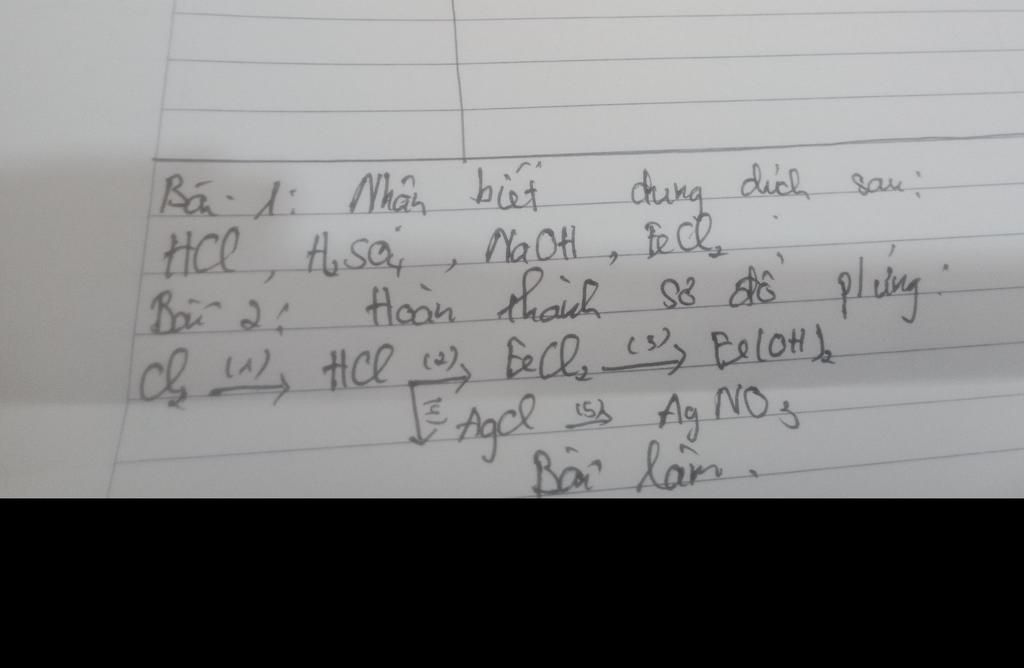 Bài 1: Nhận biết dung dịch sau:
HCl, H₂SO₄, NaOH, FeCl₂
Bài 2: Hoàn thành sơ đồ p/ứng:
Cl₂ (1)→ HCl (2)→ FeCl₂ (3)→ Fe(OH)₂
(4) AgCl (5)→ AgNO₃
Bài làm.